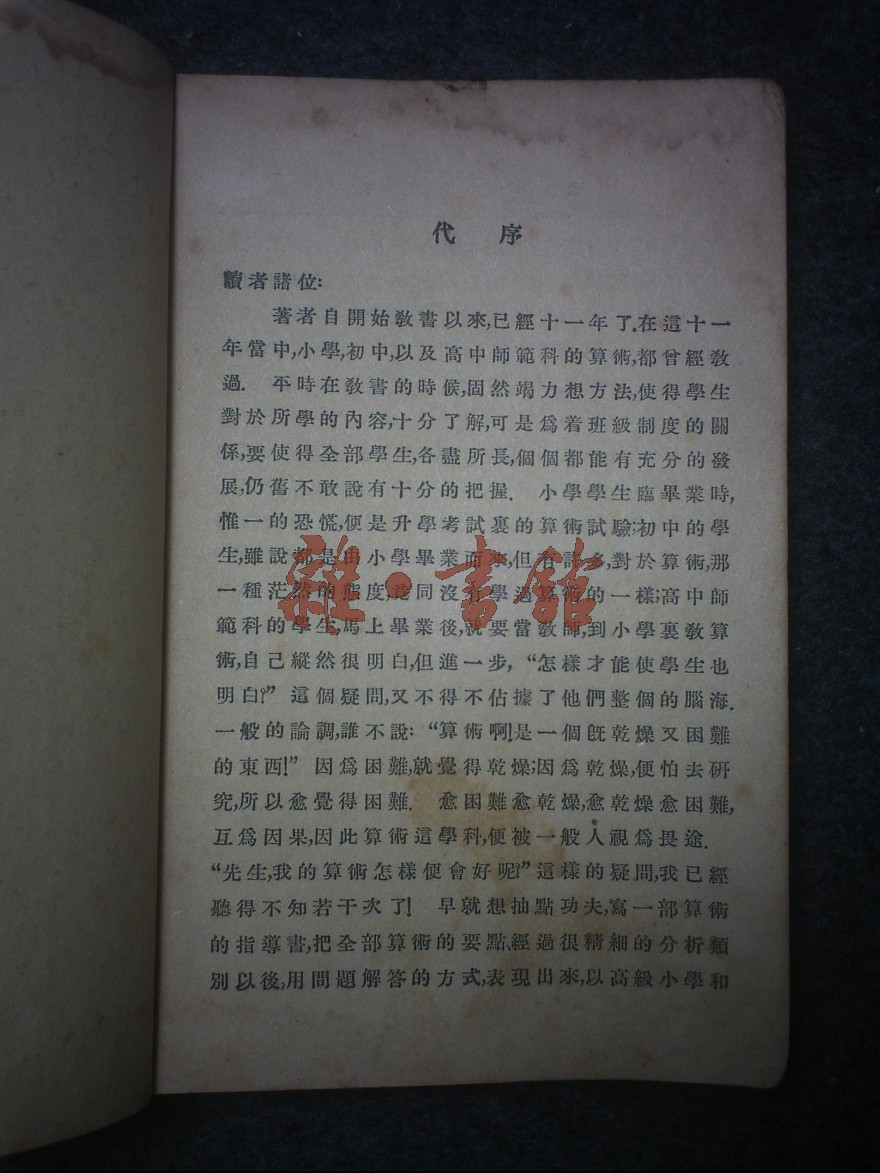 代序
讀者諸位：
著者自開始教書以來,已經十一年了.在這十一
年當中,小學,初中,以及高中師範科的算術,都曾經教
過. 平時在教書的時候,固然竭力想方法,使得學生
對於所學的內容,十分了解,可是爲着班級制度的關
係,要使得全部學生,各盡所長,個個都能有充分的發
展,仍舊不敢說有十分的把握. 小學學生臨畢業時,
惟一的恐慌,便是升學考試裏的算術試驗;初中的學
生,雖說都是由小學畢業而來,但有許多,對於算術,那
一種茫然的態度,竟同沒有學過算術的一樣;高中師
範科的學生,馬上畢業後,就要當教師,到小學裏教算
術,自己縱然很明白,但進一步,“怎樣才能使學生也
明白?” 這個疑問,又不得不佔據了他們整個的腦海.
一般的論調,誰不說:“算術啊!是一個旣乾燥又困難
的東西!” 因爲困難,就覺得乾燥;因爲乾燥,便怕去硏
究,所以愈覺得困難. 愈困難愈乾燥,愈乾燥愈困難,
互爲因果,因此算術這學科,便被一般人視爲畏途.
“先生,我的算術怎樣便會好呢?”這樣的疑問,我已經
聽得不知若干次了! 早就想抽點功夫,寫一部算術
的指導書,把全部算術的要點,經過很精細的分析類
別以後,用問題解答的方式,表現出來,以高級小學和
雜·書館